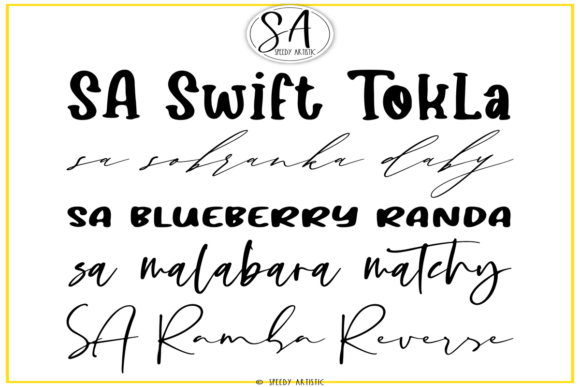 SA
SPEEDY ARTISTIC
SA Swift Tokla
sa sobranka daby
SA BLUEBERRY RANDA
sa malabara matchy
SA Ramba Reverse
© SPEEDY ARTISTIC